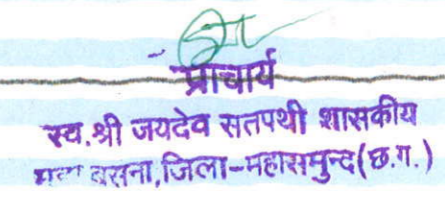 प्राचार्य
स्व.श्री जयदेव सतपथी शासकीय
बसना,जिला-महासमुन्द(छ.ग.)